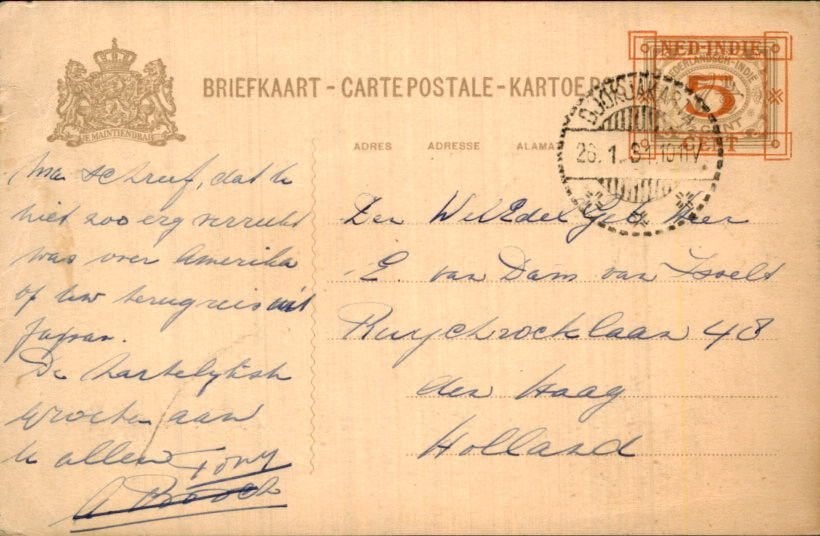 BRIEFKAART - CARTE POSTALE - KARTOE P
NED-INDIE
NEDERLANDSCH-INDIE
5
CENT
JE MAINTIENDRAI
ADRES ADRESSE ALAMA
DJOKJAKARTA
26.1.39.10 V.
Ma schreef, dat U
niet zoo erg verrukt
was over Amerika
op Uw terugreis uit
Japan.
De hartelijkste
groeten aan
U allen Tony
Den WelEdel Geb Heer
E. van Dam van Isselt
Ruychrocklaan 48
den Haag
Holland